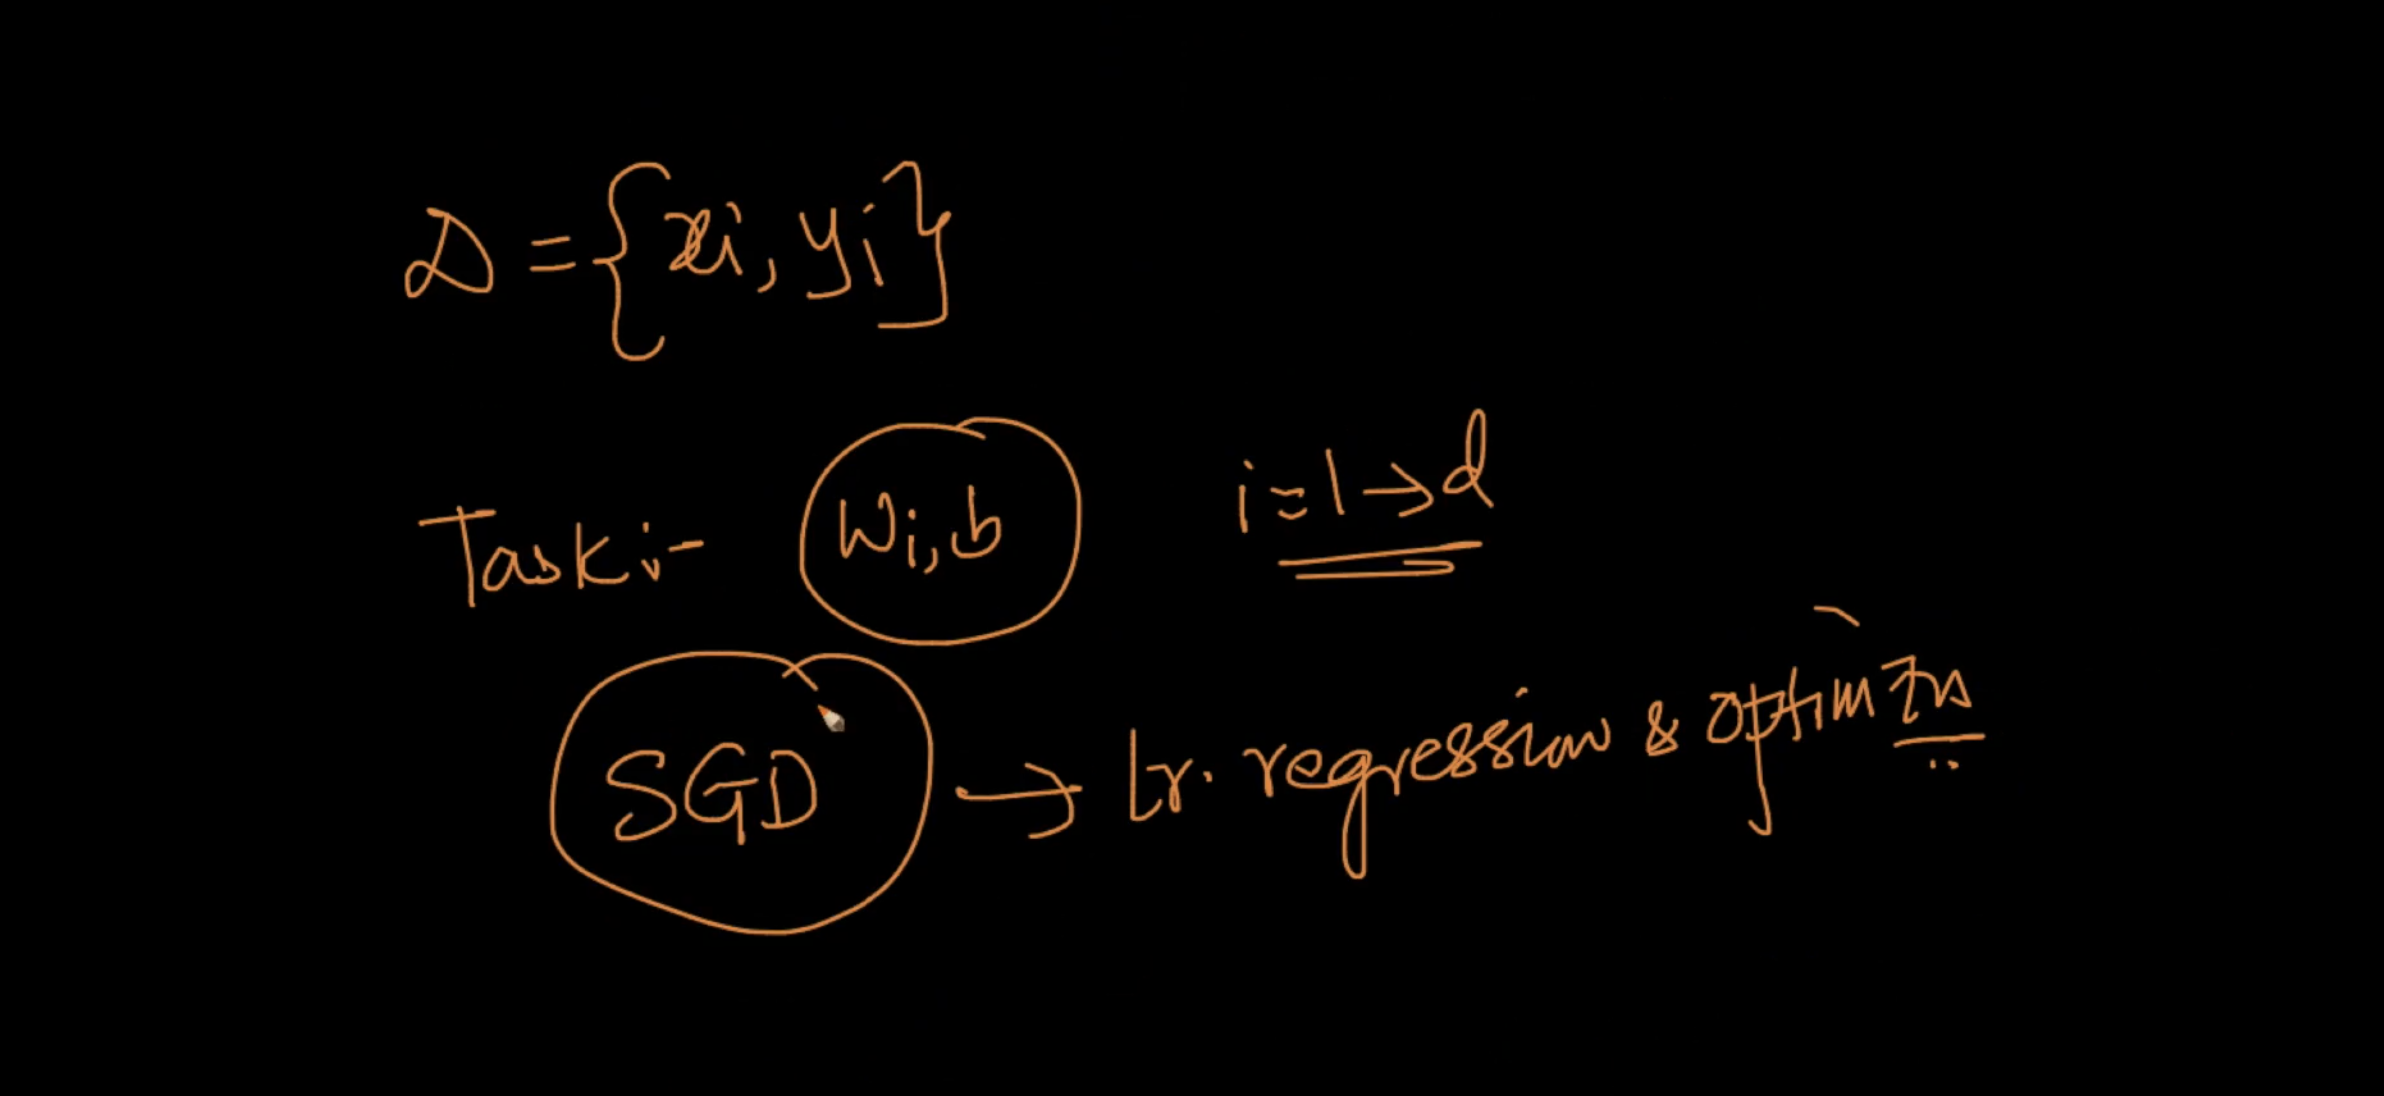 D = {xi, yi}
Task:- Wi, b i=1→d
SGD → Lr. regression & optimzn